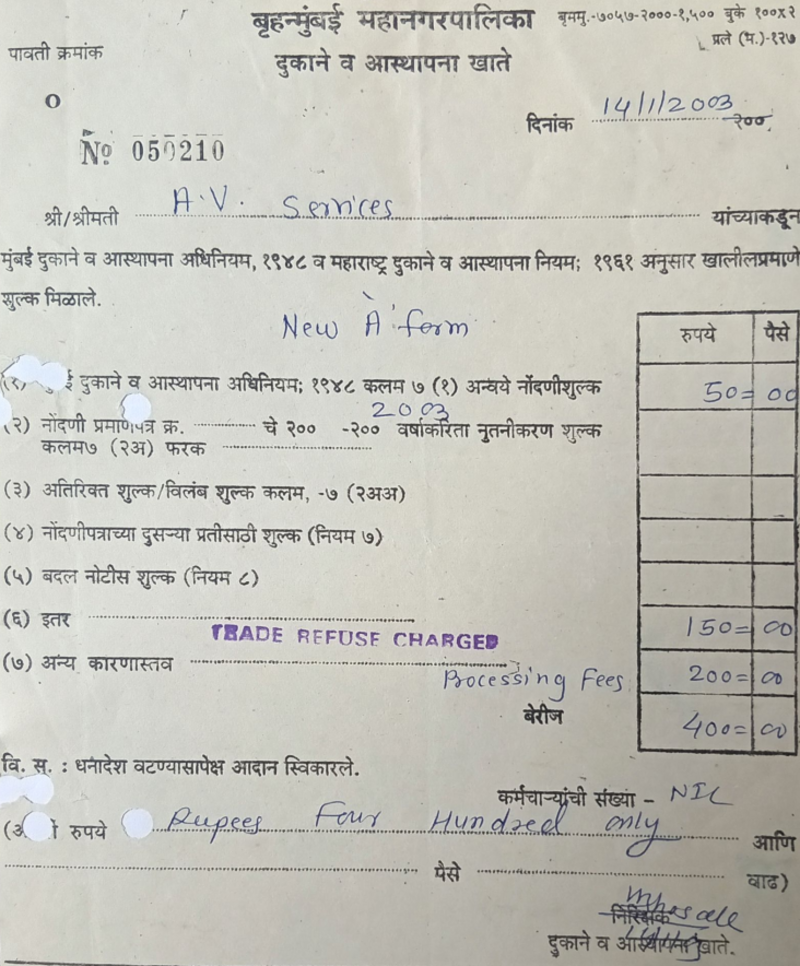 बृहन्मुंबई महानगरपालिका
बृममु.-७०५७-२०००-१,५०० बुके १००X२
प्रले (भ.)-१२७
पावती क्रमांक
दुकाने व आस्थापना खाते
O
दिनांक 14/1/2003 २००
№ 050210
श्री/श्रीमती A.V. Services यांच्याकडून
मुंबई दुकाने व आस्थापना अधिनियम, १९४८ व महाराष्ट्र दुकाने व आस्थापना नियम; १९६१ अनुसार खालीलप्रमाणे
शुल्क मिळाले.
New 'A' form
रुपये पैसे
(१) ई दुकाने व आस्थापना अधिनियम; १९४८ कलम ७ (१) अन्वये नोंदणीशुल्क 50= 00
2003
(२) नोंदणी प्रमाणपत्र क्र. चे २०० -२०० वर्षाकरिता नुतनीकरण शुल्क
कलम७ (२अ) फरक
(३) अतिरिक्त शुल्क/विलंब शुल्क कलम, -७ (२अअ)
(४) नोंदणीपत्राच्या दुसऱ्या प्रतीसाठी शुल्क (नियम ७)
(५) बदल नोटीस शुल्क (नियम ८)
(६) इतर 150= 00
TRADE REFUSE CHARGED
(७) अन्य कारणास्तव Processing Fees 200= 00
बेरीज 400= 00
वि. सू. : धनादेश वटण्यासापेक्ष आदान स्विकारले.
कर्मचाऱ्यांची संख्या - NIL
रुपये Rupees Four Hundred only आणि
पैसे वाढ)
दुकाने व आस्थापना खाते.